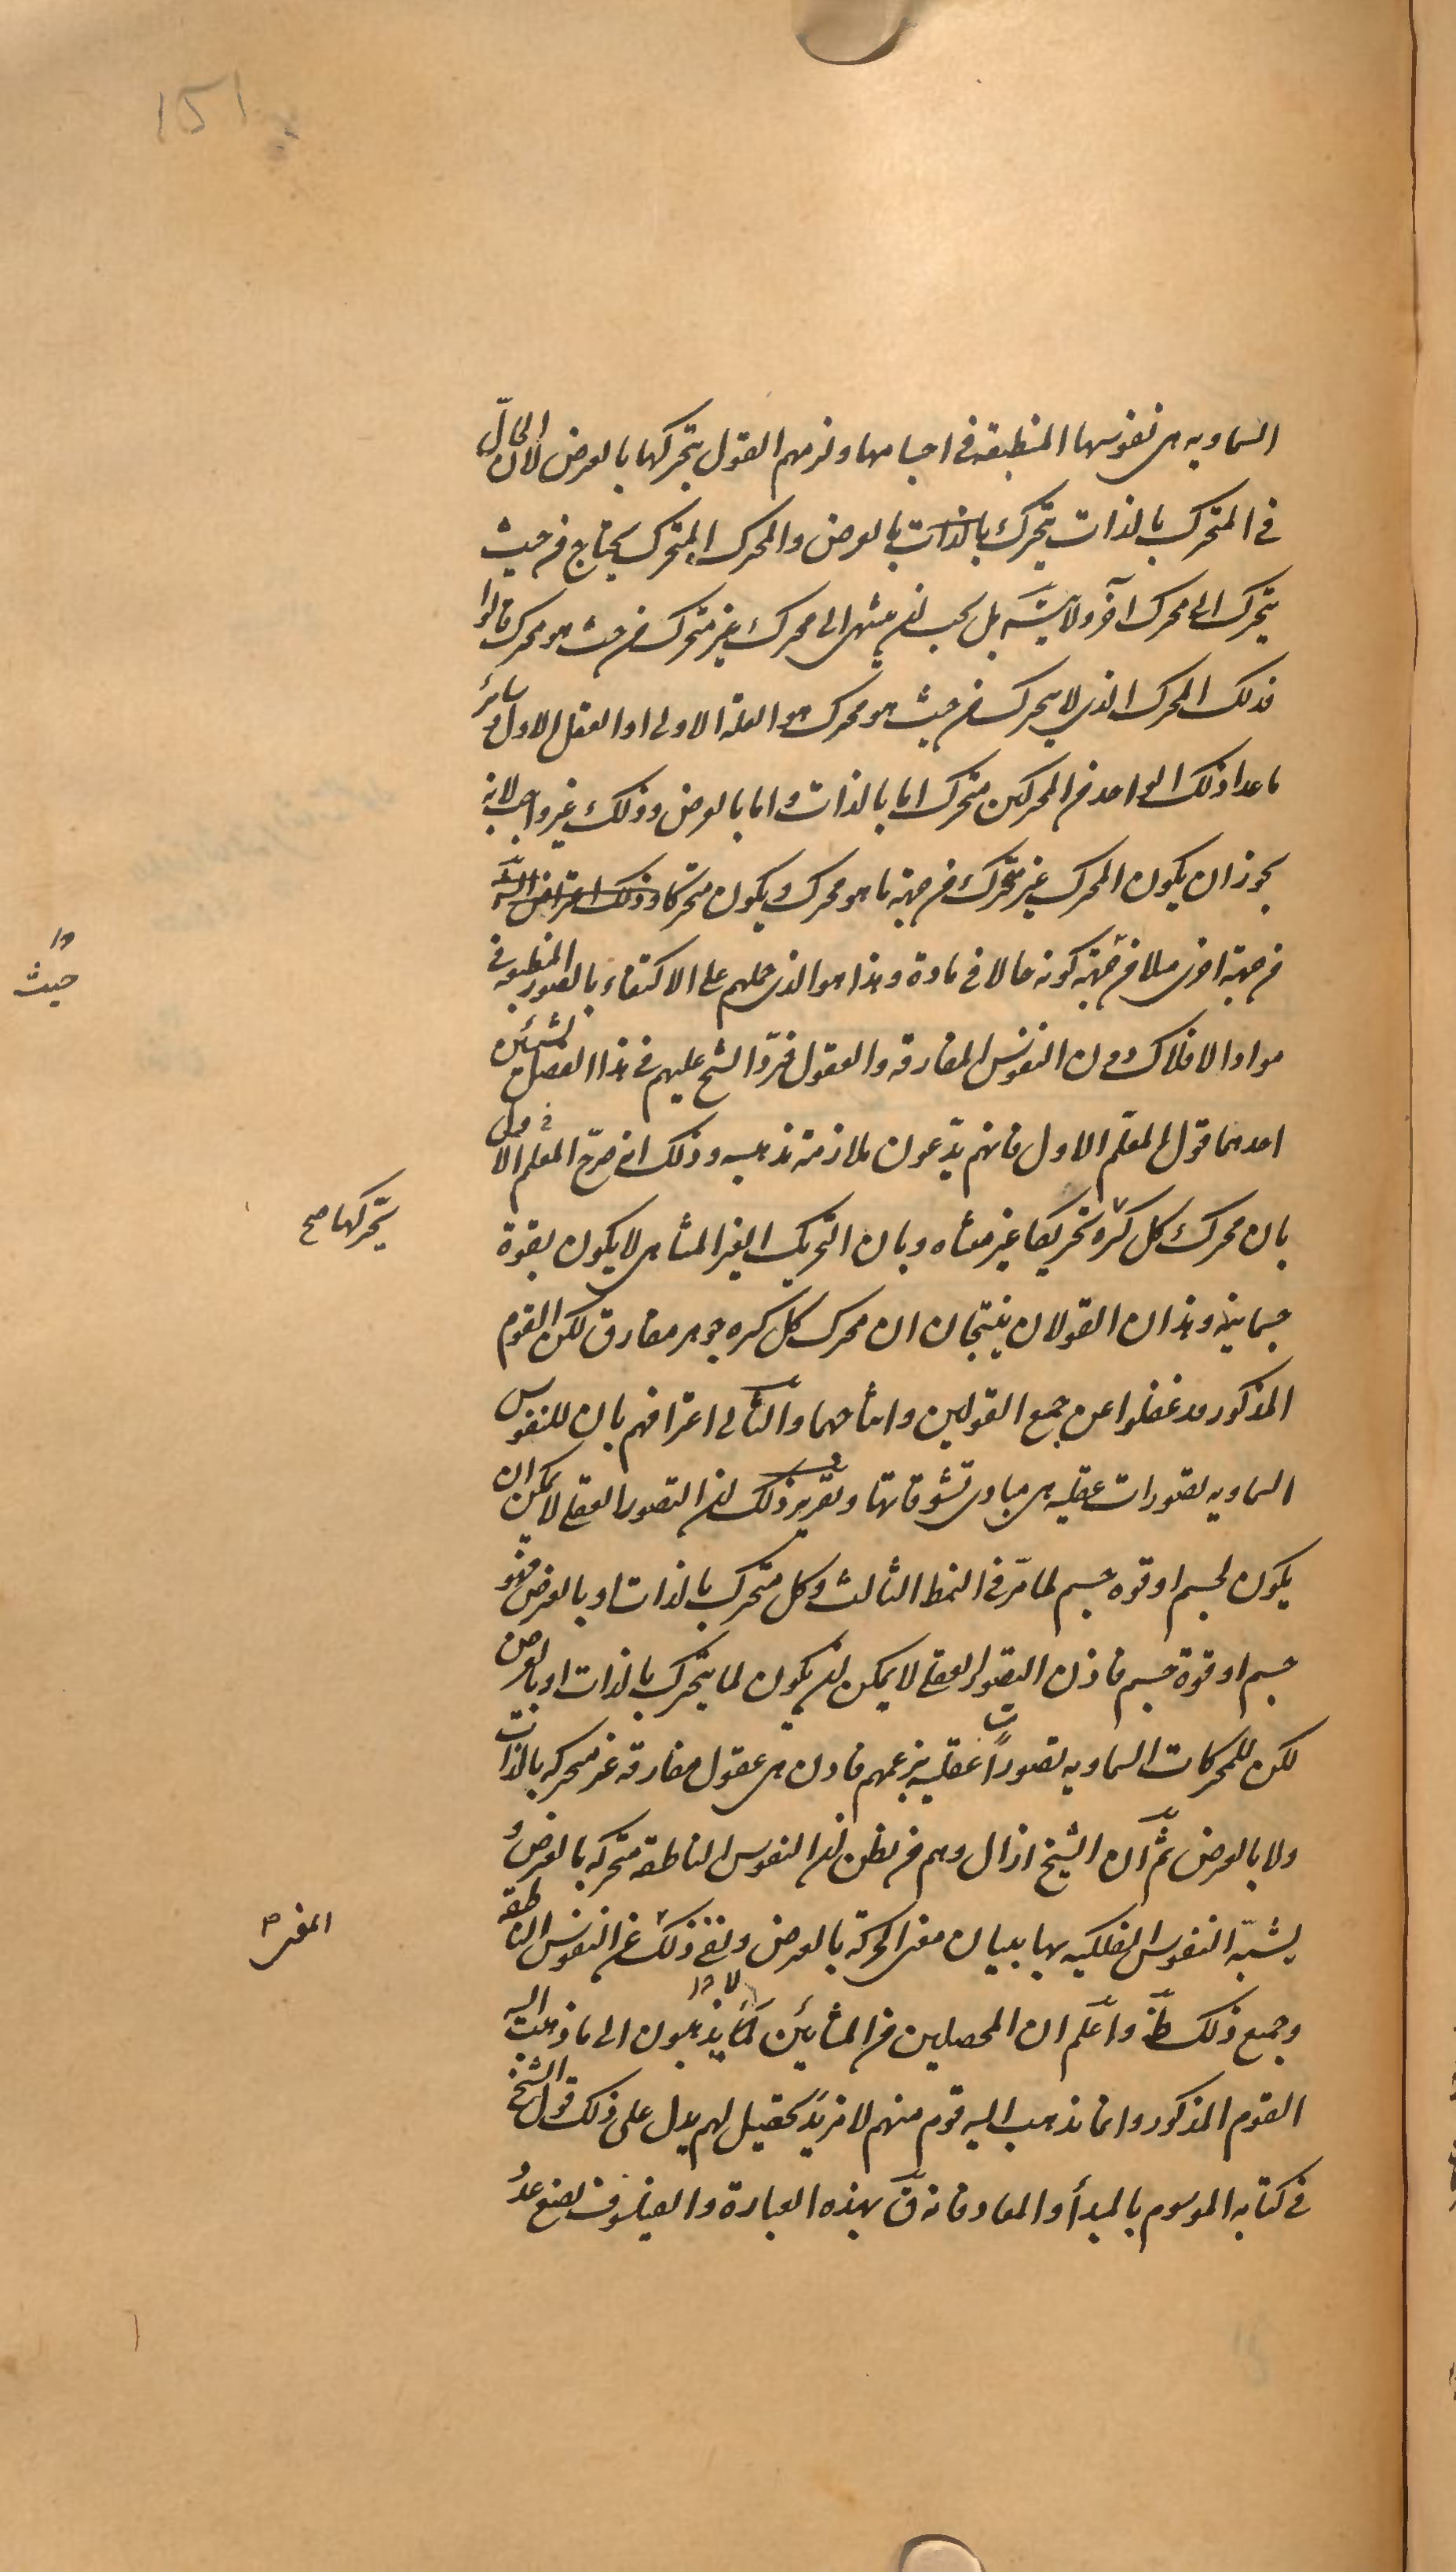 151
السماويه هى نفوسها المنطبقه فى اجسامها ولزمهم القول بتحركها بالعرض لان الحالّ
فى المتحرك بالذات يتحرك بالذات بالعرض والمحرك المتحرك يحتاج من حيث
يتحرك الى محرك آخر ولا يتسَه بل يجب ان ينتهى الى محرك غير متحرك من حيث هو محرك قالوا
فذلك المحرك الذى لا يتحرك من حيث هو محرك هو العلة الاولى او العقل الاول و سائر
ما عدا ذلك الواحد من المحركين متحرك اما بالذات و اما بالعرض وذلك غير واجب لانه
يجوز ان يكون المحرك غير متحرك من جهة ما هو محرك و يكون متحركا وذلك اعتراض
من جهة اخرى مثلا من جهة كونه حالا فى مادة وهذا هو الذى حملهم على الاكتفاء بالصور المنطبعه فى
حيث
مواد الافلاك دون النفوس المفارقه والعقول فردّ الشيخ عليهم فى هذا الفصل بشيئين
احدهما قول المعلّم الاول فانهم يدّعون ملازمة مذهبه وذلك انه صرّح المعلّم الاول
بان محرك كل كرة تحريكا غير متناه وبان التحريك الغير المتناهى لا يكون بقوة
يتحركها صح
جسمانيه وهذان القولان ينتجان ان محرك كل كره جوهر مفارق لكن القوم
المذكور قد غفلوا عن جمع القولين وانتاجهما والثانى اعترافهم بان للنفوس
السماويه تصورات عقليه هى مبادى تشوقاتها وتقرير ذلك ان التصور العقلى لا يمكن ان
يكون لجسم او قوه جسم لما مرّ فى النمط الثالث وكل متحرك بالذات او بالعرض فهو
جسم او قوة جسم فاذن التصور العقلى لا يمكن ان يكون لما يتحرك بالذات او بالعرض
لكن للمحركات السماويه تصورات عقليه بزعمهم فاذن هى عقول مفارقه غير متحركه بالذات
ولا بالعرض ثمّ ان الشيخ ازال وهم من يظن ان النفوس الناطقه متحركه بالعرض و
يشبّه النفوس الفلكيه بها ببيان معنى الحركة بالعرض ونفى ذلك عن النفوس الناطقه
وجميع ذلك ظَ واعَلم ان المحصلين من المشائين لا يذهبون الى ما ذهبت اليه
القوم المذكور وانما يذهب اليه قوم منهم لا مزيد تحصيل لهم يدل على ذلك قول الشيخ
فى كتابه الموسوم بالمبدأ والمعاد فانه قَ بهذه العبارة والفيلسوف يضع عدد